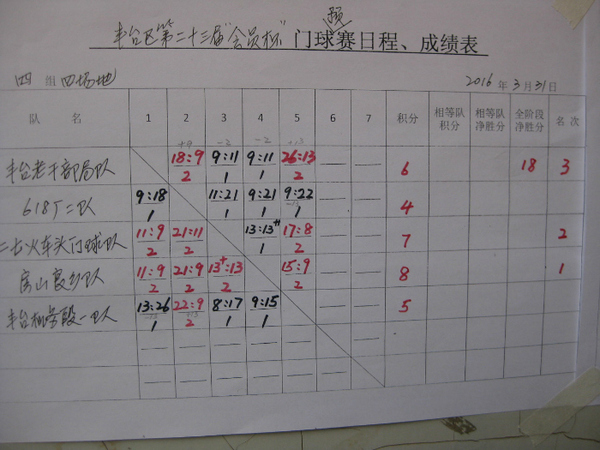 预
丰台区第二十三届"会员杯"门球赛日程、成绩表
四 组 四场地 2016年3月31日
队 名 1 2 3 4 5 6 7 积分 相等队积分 相等队净胜分 全阶段净胜分 名次
丰台老干部局队 18:9 9:11 9:11 26:13 — — 6 18 3
2 1 1 2
618厂二队 9:18 11:21 9:21 9:22 — — 4
1 1 1 1
二七火车头门球队 11:9 21:11 13:13+ 17:8 — — 7 2
2 2 1 2
房山 队 11:9 21:9 13+:13 15:9 — — 8 1
2 2 2 2
丰台 段一队 13:26 22:9 8:17 9:15 — — 5
1 2 1 1